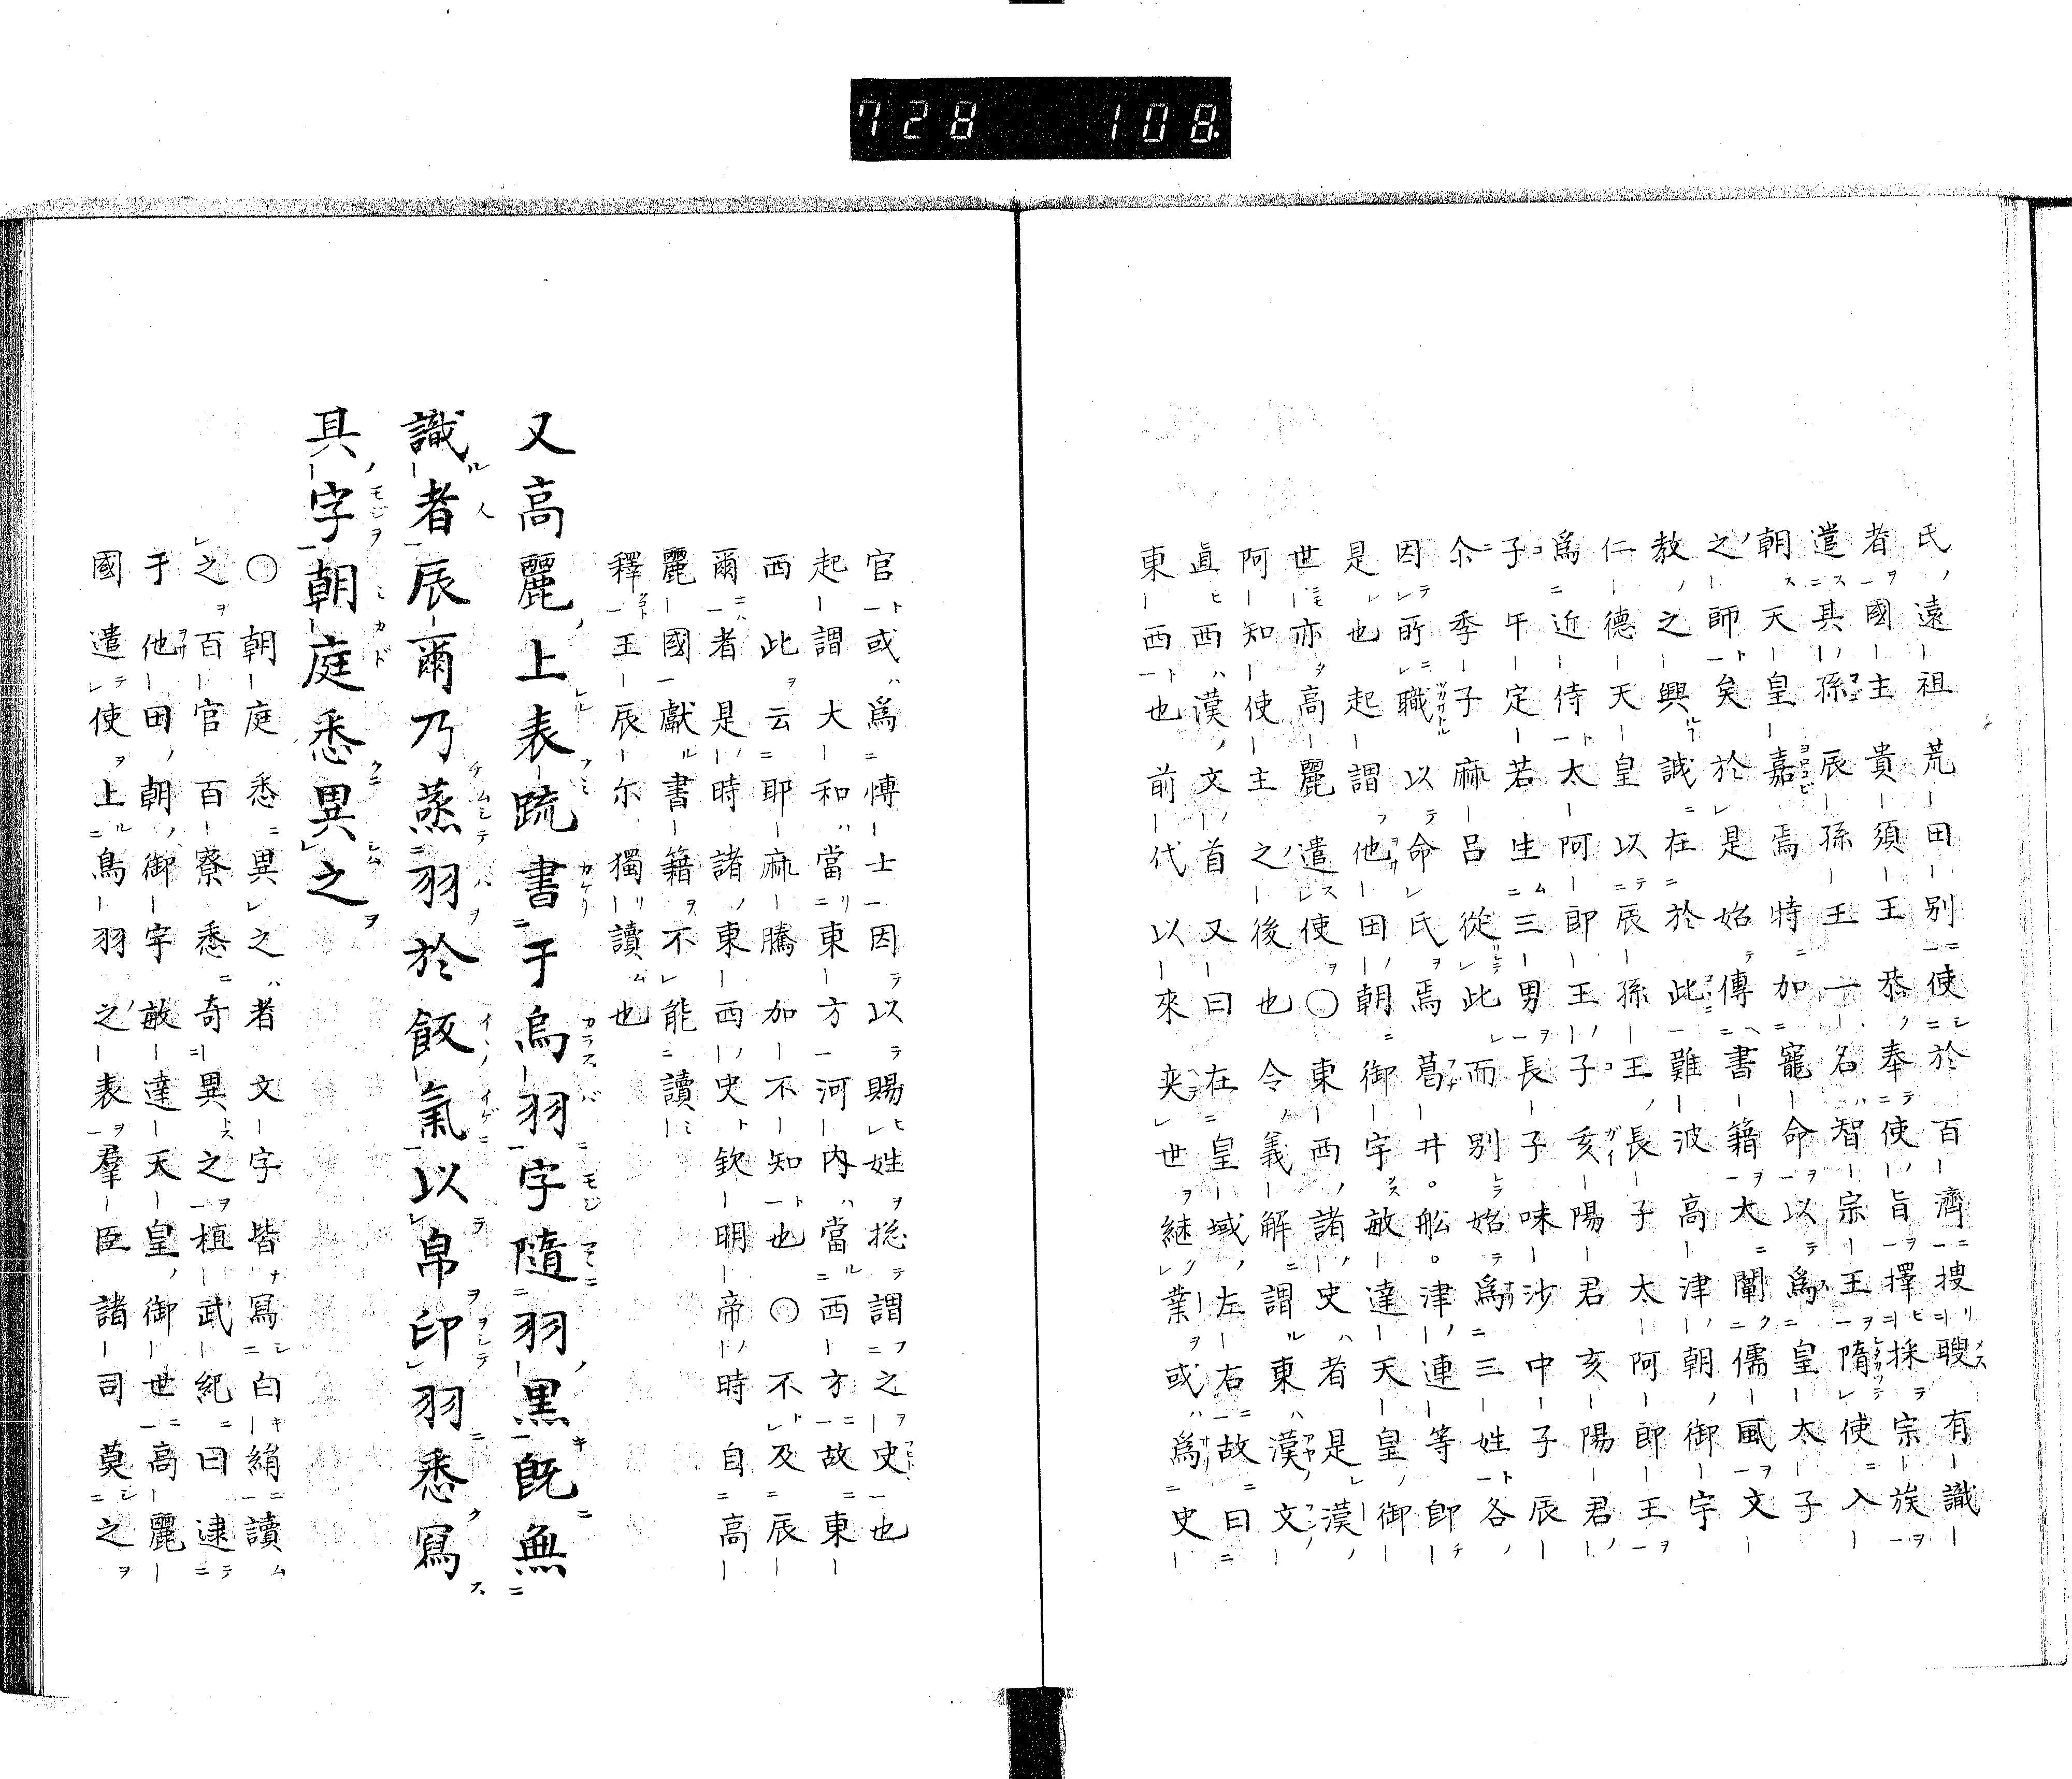 728 108
氏遠祖荒田別使於百濟捜聰有識
者國主貴須王恭奉使旨擇採宗族
遣其孫辰孫王一名智宗王隋使入
朝天皇嘉焉特加寵命以為皇太子
之師矣於是始傳書籍大闡儒風文
教之興誠在於此難波高津朝御宇
仁德天皇以辰孫王長子太阿郎王
為近侍太阿郎王子亥陽君亥陽君
子午定若生三男長子味沙中子辰
尒季子麻呂從此而別始為三姓各
因所職以命氏焉葛井舩津連等即
是也起謂他田朝御宇敏達天皇御
世亦高麗遣使〇東西諸史者是漢
阿知使主之後也令義解謂東漢文
直西漢文首又曰在皇域左右故曰
東西也前代以來奕世継業或為史
官或為博士因以賜姓捴謂之史也
起謂大和當東方河内當西方故東
西此云耶麻騰加不知也〇不及辰
爾者是時諸東西史欽明帝時自高
麗國獻書籍不能讀
釋王辰尓獨讀也
又高麗上表䟽書于烏羽字隨羽黒既無
識者辰爾乃蒸羽於飯氣以帛印羽悉寫
其字朝庭悉異之
〇朝庭悉異之者文字皆寫白絹讀
之百官百寮悉奇異之植武紀曰逮
于他田朝御宇敏達天皇御世高麗
國遣使上烏羽之表羣臣諸司莫之